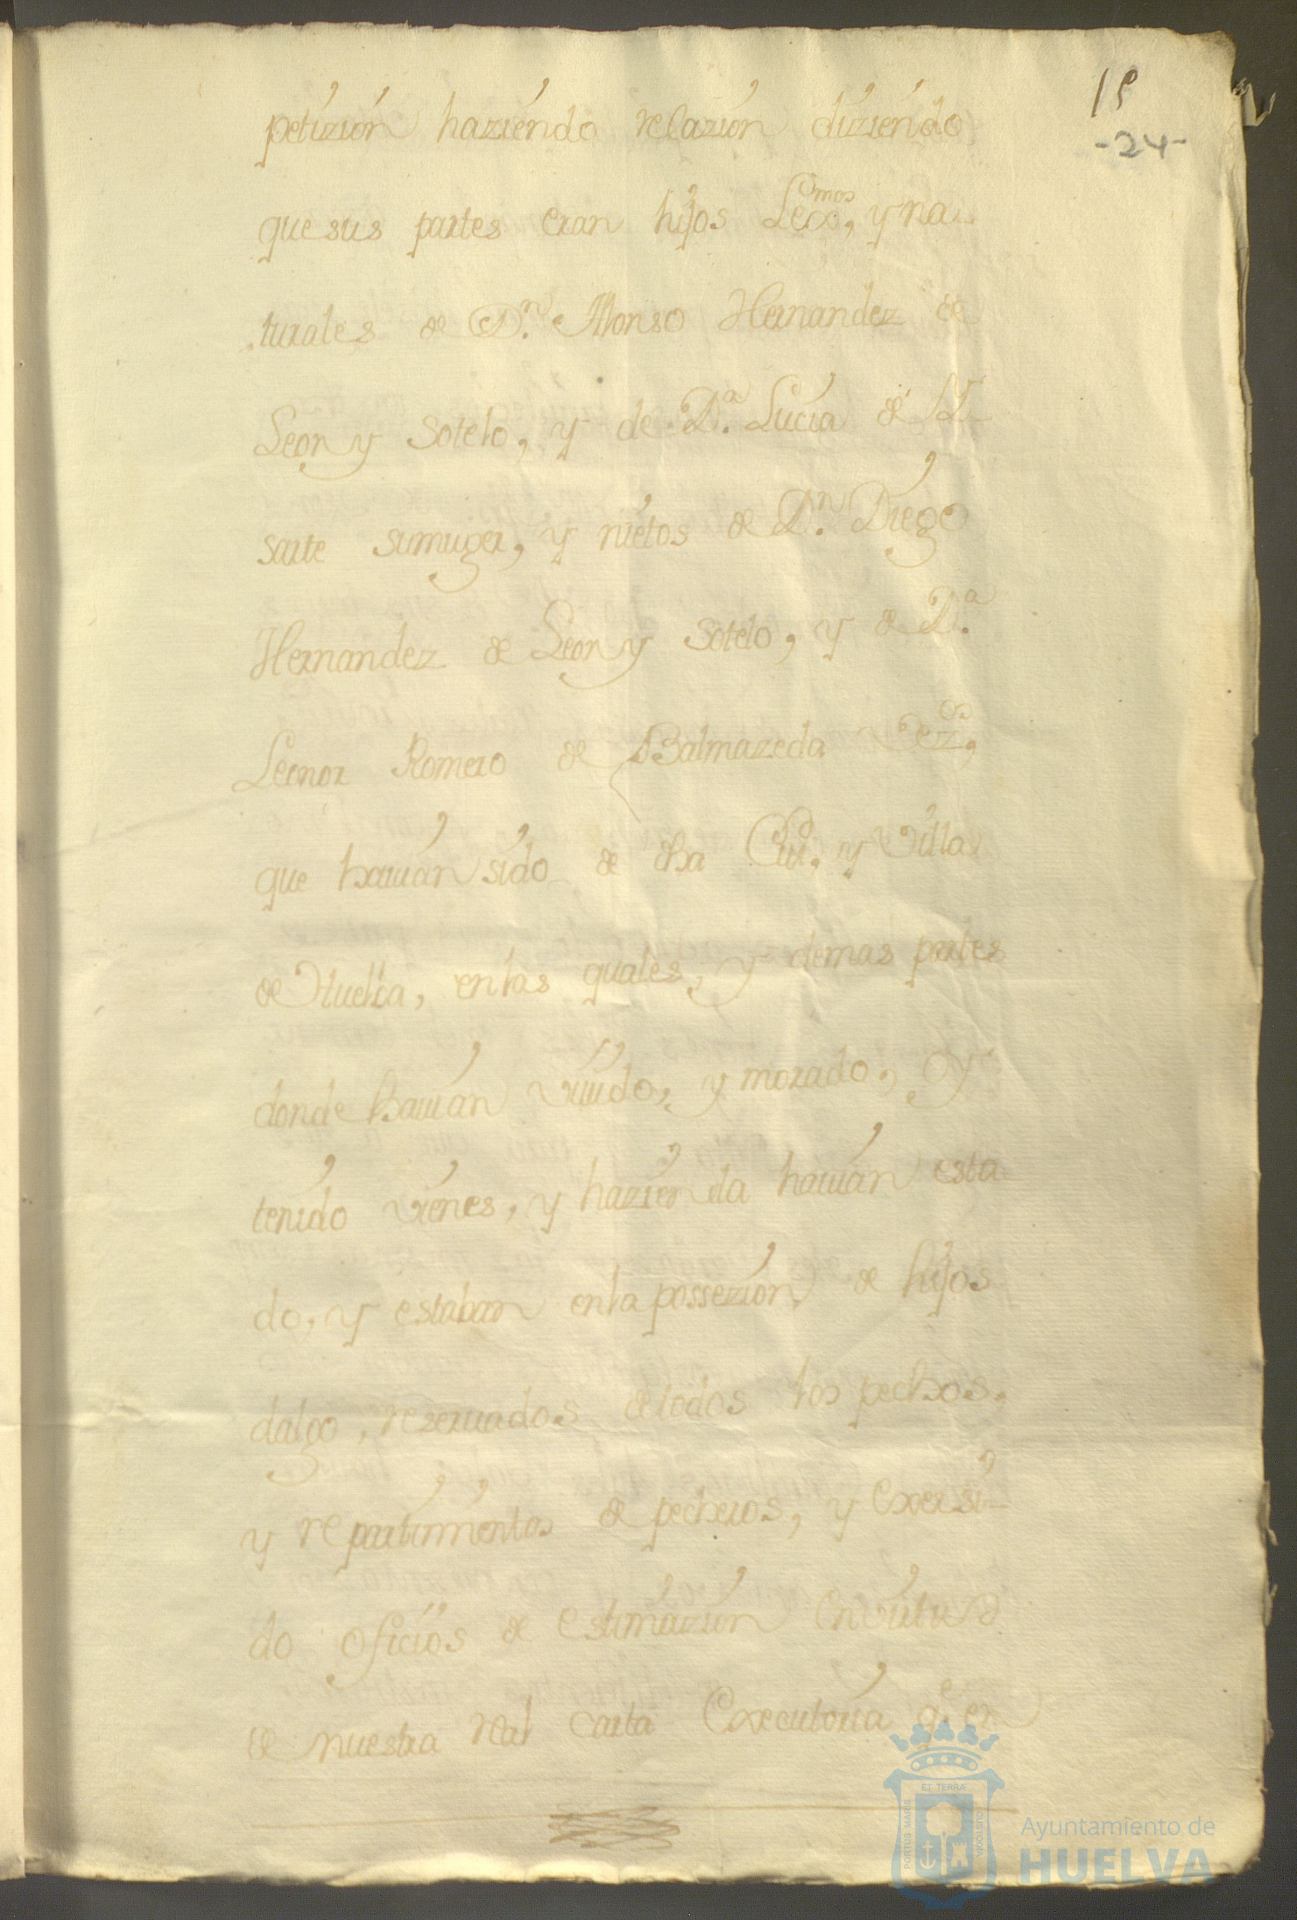 15
-24-
petizion haziendo relazion diziendo
que sus partes eran hijos Lexmos, y na-
turales de Dn. Alonso Hernandez de
Leon y Sotelo, y de Da. Lucia de
sarte su muger, y nietos de Dn. Diego
Hernandez de Leon y Sotelo, y de Da.
Leonor Romero de Balmazeda Vezos,
que hauian sido de dha Ciud. y Villa
de Huelba, en las quales, y demas partes
donde hauian viuido, y morado, y
tenido vienes, y hazienda hauian esta
do, y estaban en la possezion de hijos
dalgo, reseruados de todos los pechos,
y repartimientos de pecheros, y exersi-
do oficios de estimazion en virtud
de nuestra real carta executoria qe. en
Ayuntamiento de
HUELVA
PORTUS MARIS
ET TERRÆ
CUSTODIA